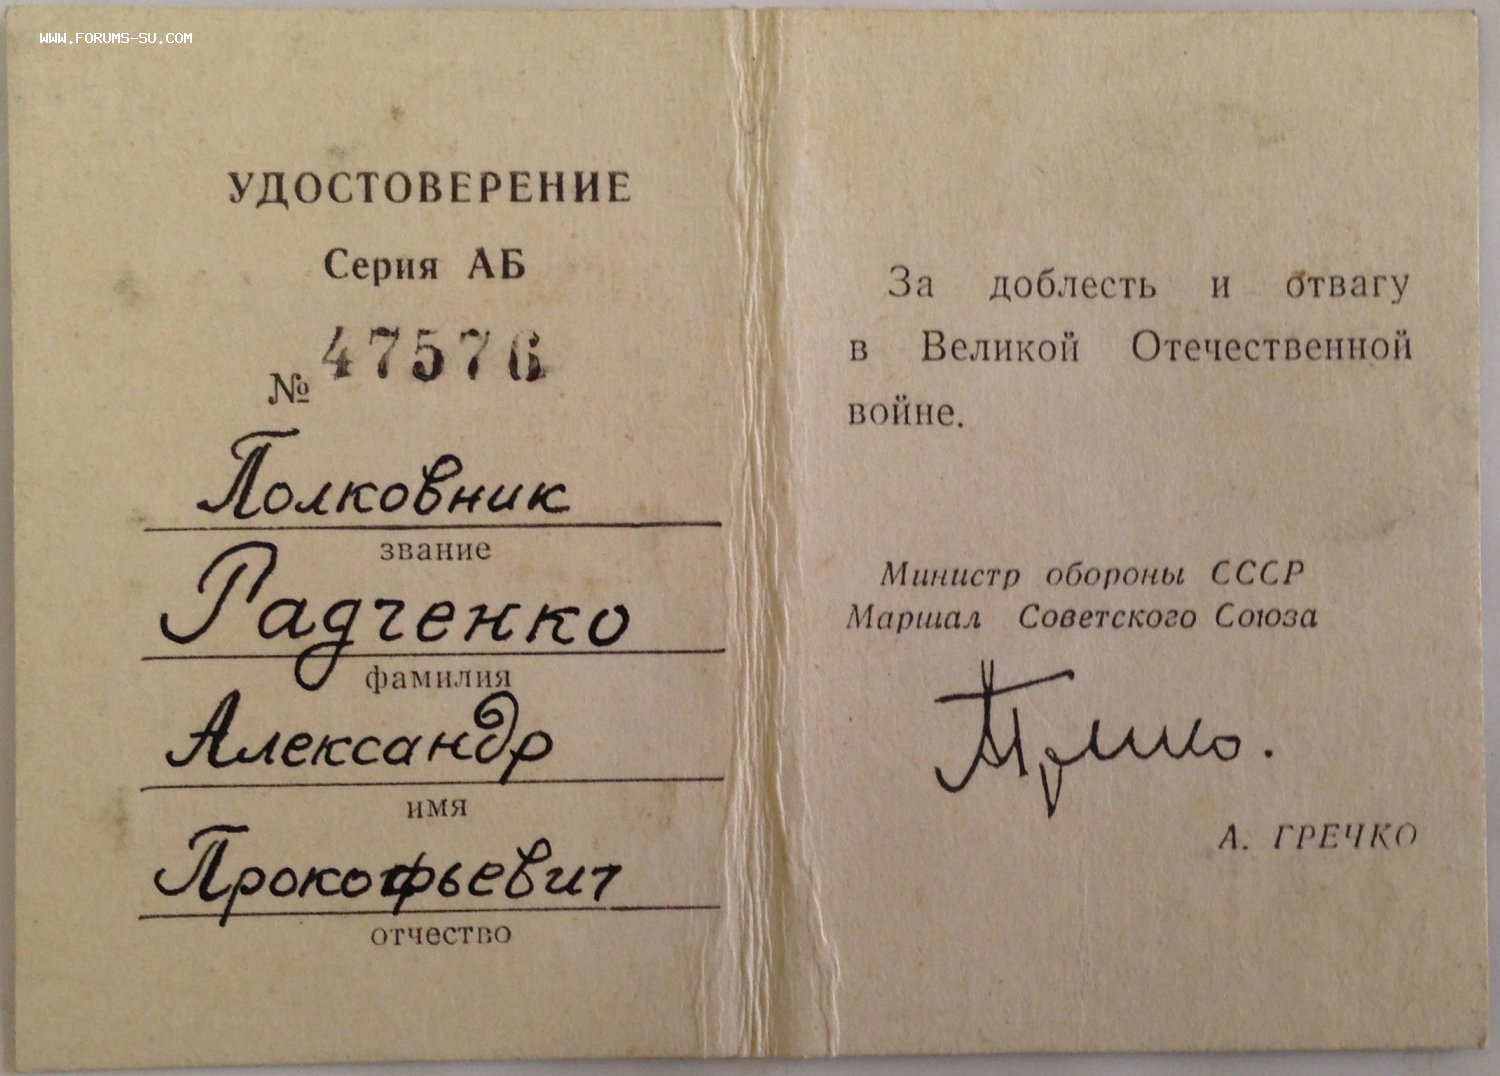 WWW.FORUMS-SU.COM
УДОСТОВЕРЕНИЕ
Серия АБ
№ 47576
Полковник
звание
Радченко
фамилия
Александр
имя
Прокофьевич
отчество
За доблесть и отвагу
в Великой Отечественной
войне.
Министр обороны СССР
Маршал Советского Союза
АГречко.
А. ГРЕЧКО